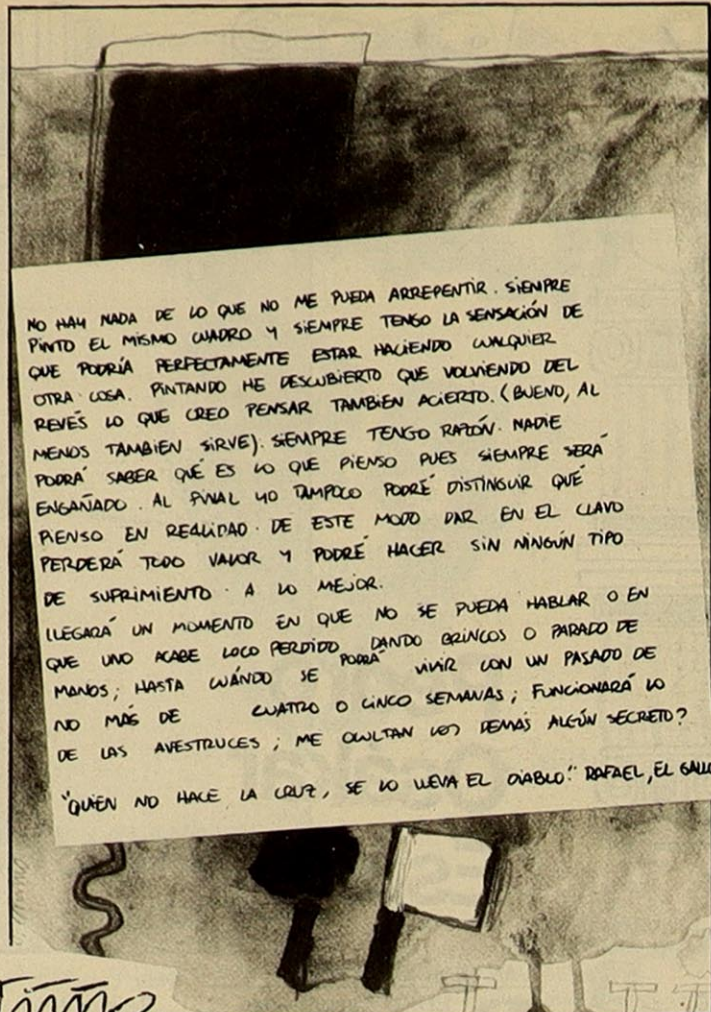 NO HAY NADA DE LO QUE NO ME PUEDA ARREPENTIR. SIEMPRE
PINTO EL MISMO CUADRO Y SIEMPRE TENGO LA SENSACIÓN DE
QUE PODRÍA PERFECTAMENTE ESTAR HACIENDO CUALQUIER
OTRA COSA. PINTANDO HE DESCUBIERTO QUE VOLVIENDO DEL
REVÉS LO QUE CREO PENSAR TAMBIEN ACIERTO. (BUENO, AL
MENOS TAMBIEN SIRVE). SIEMPRE TENGO RAZÓN. NADIE
PODRÁ SABER QUÉ ES LO QUE PIENSO PUES SIEMPRE SERÁ
ENGAÑADO. AL FINAL YO TAMPOCO PODRÉ DISTINGUIR QUÉ
PIENSO EN REALIDAD. DE ESTE MODO DAR EN EL CLAVO
PERDERÁ TODO VALOR Y PODRÉ HACER SIN NINGÚN TIPO
DE SUFRIMIENTO. A LO MEJOR.
LLEGARÁ UN MOMENTO EN QUE NO SE PUEDA HABLAR O EN
QUE UNO ACABE LOCO PERDIDO DANDO BRINCOS O PARADO DE
MANOS; HASTA CUÁNDO SE PODRÁ VIVIR CON UN PASADO DE
NO MÁS DE CUATRO O CINCO SEMANAS; FUNCIONARÁ LO
DE LAS AVESTRUCES; ME OCULTAN LOS DEMÁS ALGÚN SECRETO?
"QUIEN NO HACE LA CRUZ, SE LO LLEVA EL DIABLO." RAFAEL, EL GALLO